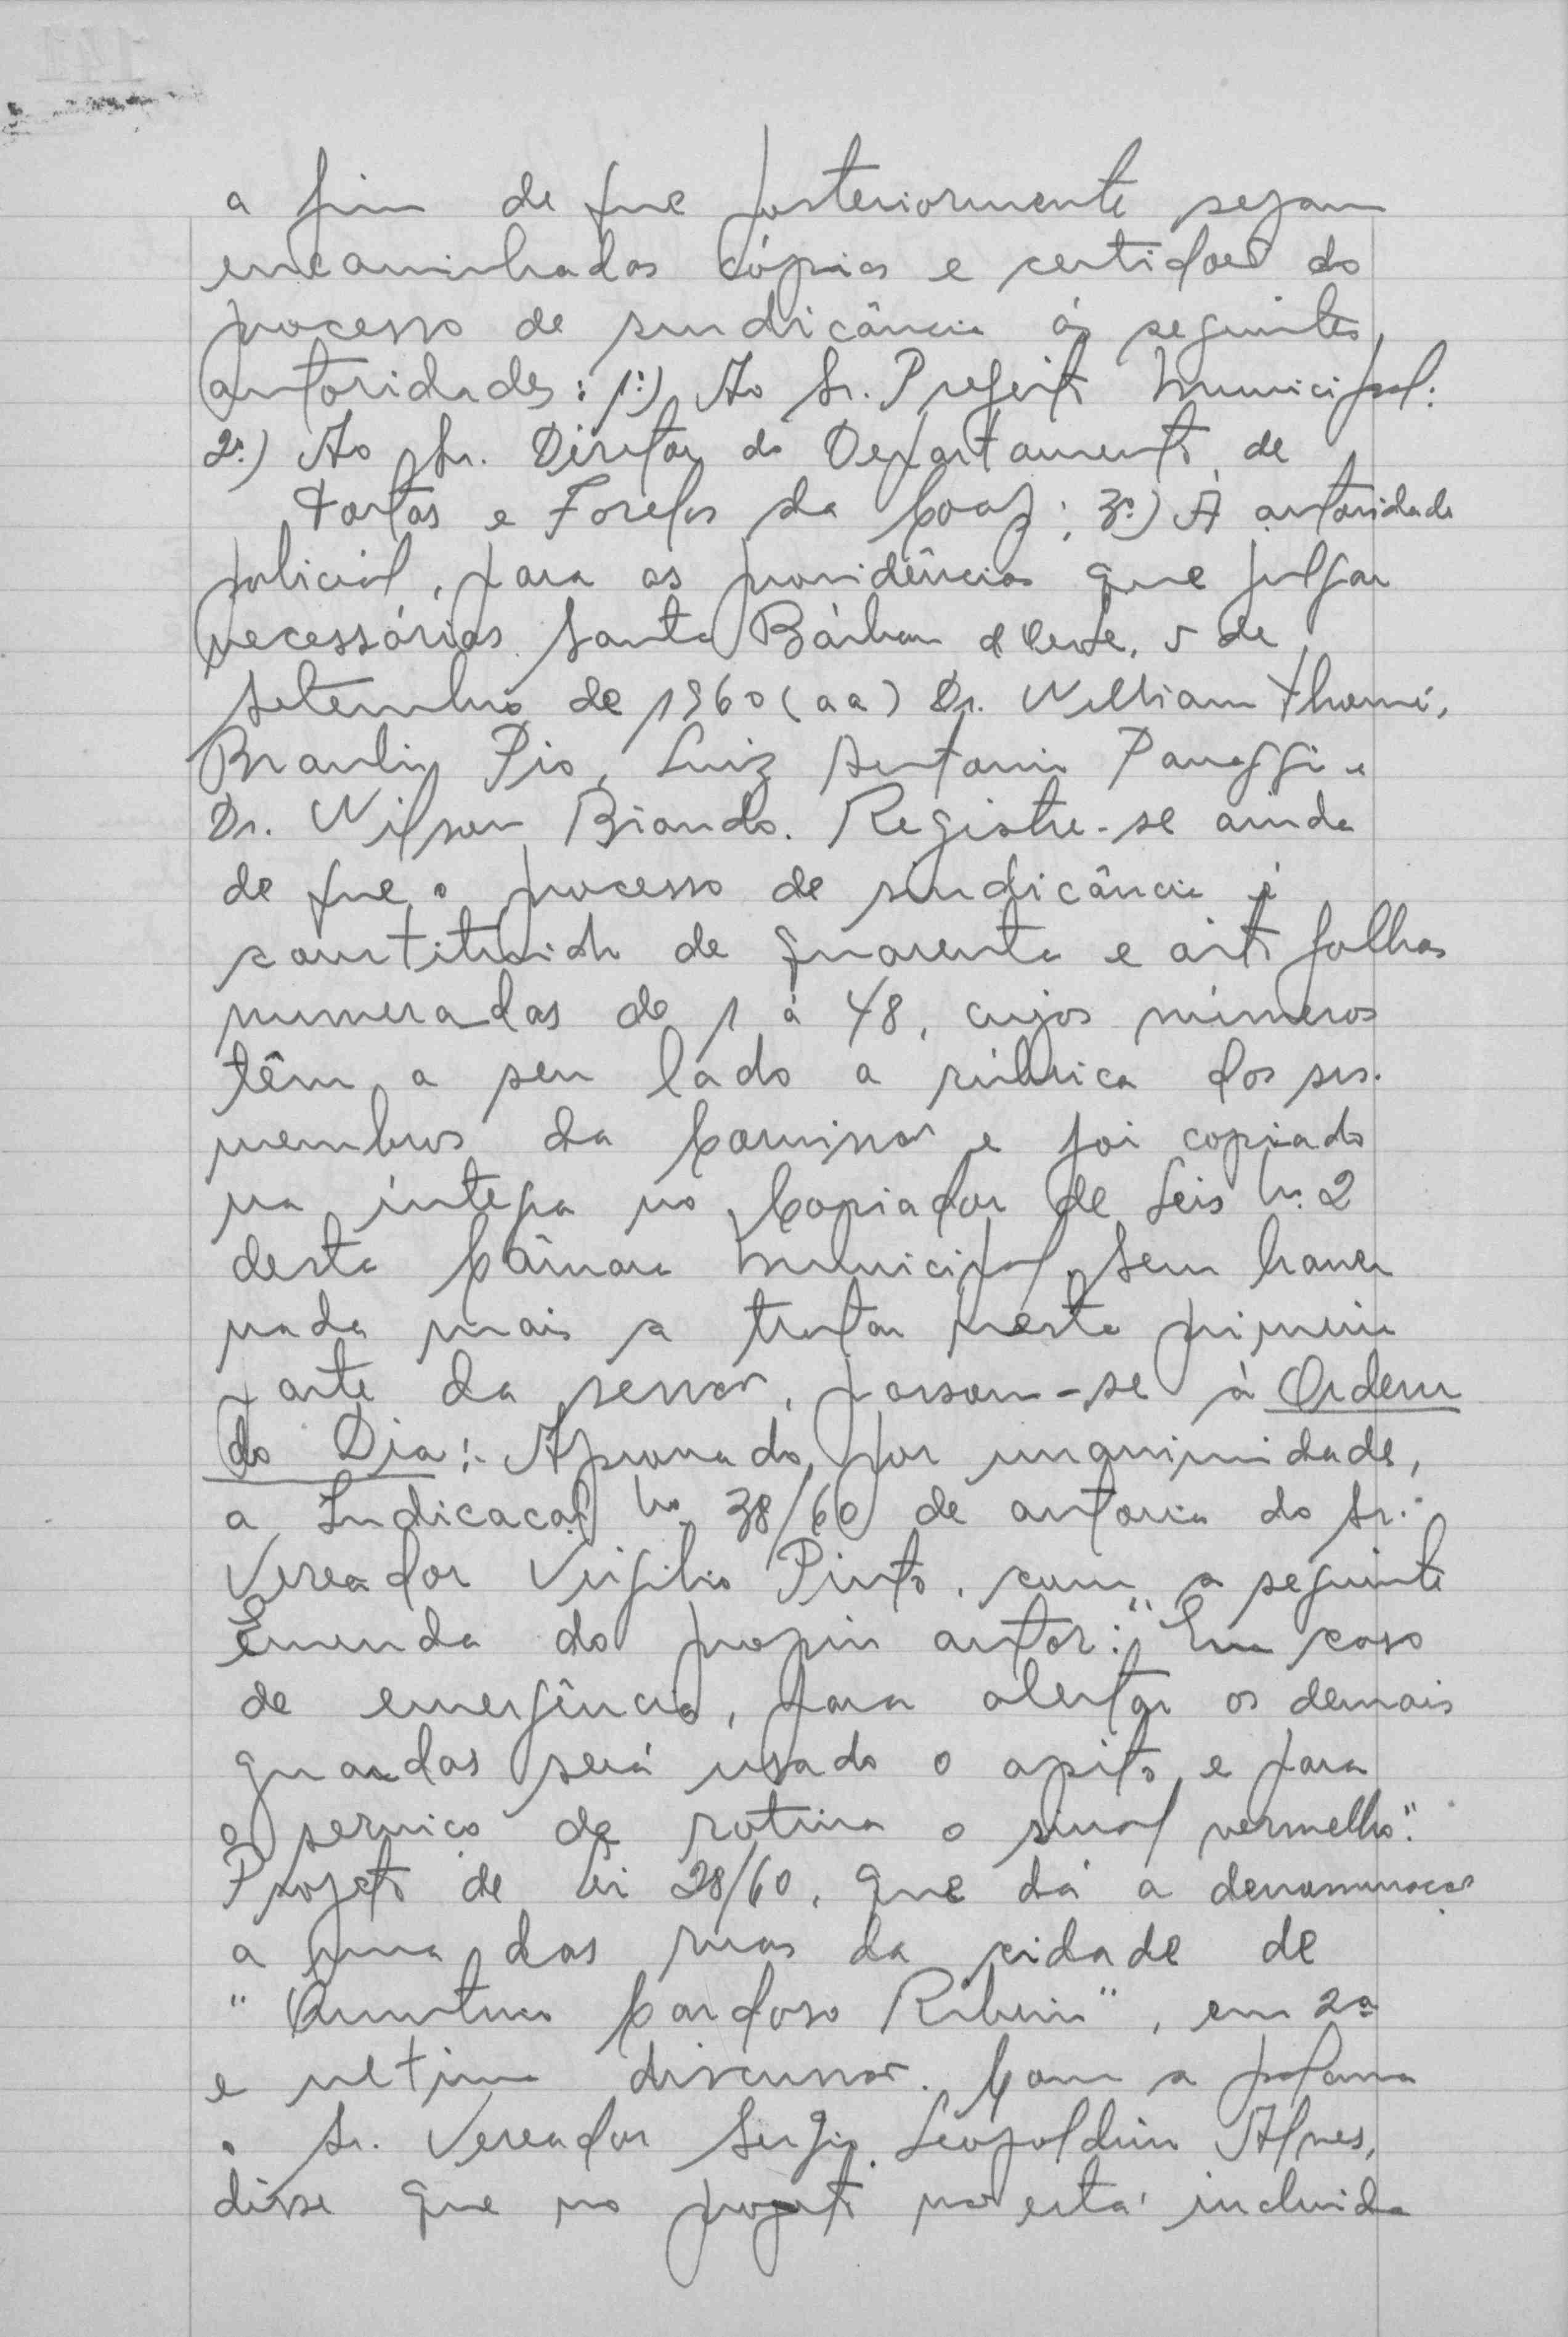 a fim de que posteriormente sejam
encaminhadas cópias e certidões do
processo de sindicância ás seguintes
autoridades: 1º) Ao Sr. Prefeito Municipal:
2º) Ao Sr. Diretor do Departamento de
e da Coap; 3º) Á autoridade
policial, para as providências que julgar
necessárias. Santa Bárbara d'Oeste, 5 de
Setembro de 1960 (aa) Dr. William Thomé,
Braulio Pio, Luiz Antonio Panaggi e
Dr. Nilson Biando. Registre-se ainda
de que o processo de sindicância é
constituido de quarenta e oito folhas
numeradas de 1 á 48, cujos números
têm a seu lado a rúbrica dos srs.
membros da Comissão e foi copiado
na íntegra no Copiador de Leis nº 2
desta Câmara Municipal. Sem haver
nada mais a tratar nesta primeira
parte da sessão, passou-se à Ordem
do Dia:- Aprovado por unanimidade,
a Indicação nº 38/60 de autoria do Sr.
Vereador Virgilio Pinto, com a seguinte
Emenda do proprio autor: "Em caso
de emergência, para alertar os demais
guardas será usado o apito e para
o serviço de rotina o sinal vermelho".
Projeto de lei 28/60, que dá a denominação
a uma das ruas da cidade de
" Cardoso Ribeiro", em 2ª
e ultima discussão. Com a palavra
o Sr. Vereador Sergio Leopoldino Alves,
disse que no projeto não está incluida